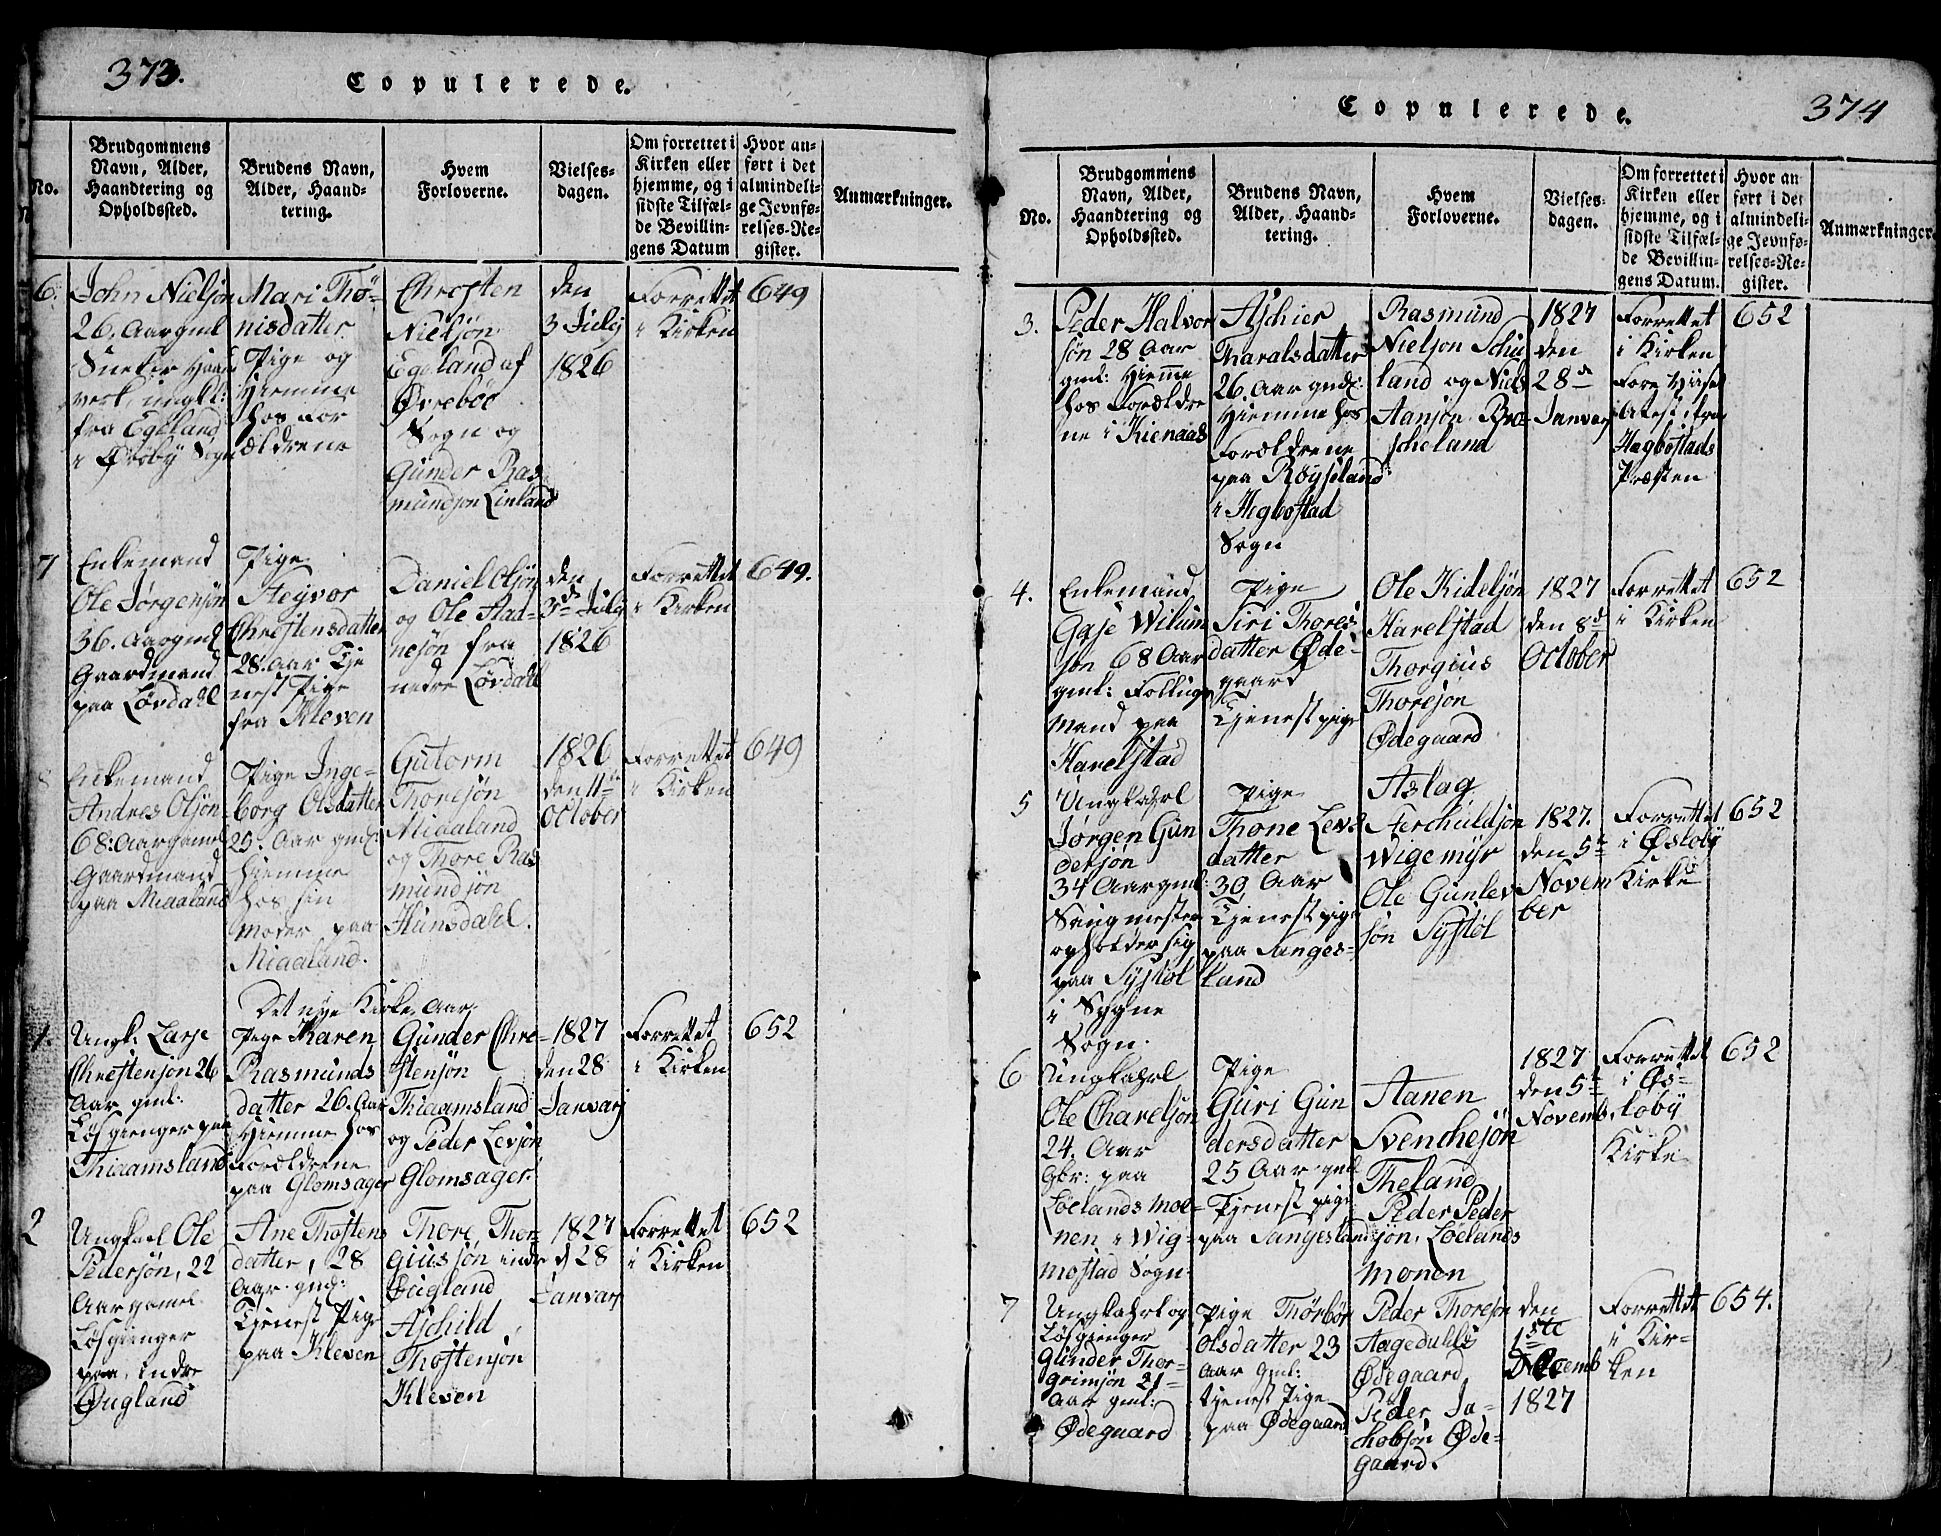 373.
Copulerede.
No.
Brudgommens
Navn, Alder,
Haandtering og
Opholdssted.
Brudens Navn,
Alder, Haand-
tering.
Hvem
Forloverne.
Vielses-
dagen.
Om forrettet i
Kirken eller
hjemme, og i
sidste Tilfæl-
de Bevillin-
gens Datum
Hvor an-
ført i det
almindeli-
ge Jevnfø-
relses-Re-
gister.
Anmærkninger.
6.
John Nielsøn
26. Aar gml
fra Egeland
Mari Thø-
nisdatter
Pige og
Hiemme
hos For
ældrene
Chresten
Nielsøn
Egeland af
Øvreböe
Sogn og
Gunder Ras
mundsøn Linland
den
3 July
1826
Forrettet
i Kirken
649
7
Enkemand
Ole Jørgensøn
36. Aar gml
Gaardmand
paa Løvdahl
Pige
Steyvor
Chrestensdatter
28. Aar Tje
nest Pige
fra Kleven
Daniel Olsøn
og Ole Aad-
nesøn fra
nedre Lövdahl
den
3d July
1826
Forrettet
i Kirken
649.
8
Enkemand
Andres Olsøn
68: Aar gamel
Gaardmand
paa Midaland
Pige Inge-
borg Olsdatter
25. Aar gml:
hiemme
hos sin
Moder paa
Midaland.
Gutorm
Thoresøn
Midaland
og Thore Ras
mundsøn
Hunsdahl.
1826
den 11te
October
Forrettet
i Kirken
649
Det nye Kirke Aar
1.
Ungk: Larse
Chrestensøn 26
Aar gml:
Løsgienger paa
Thiaamsland
Pige Karen
Rasmunds
datter 26. Aar
Hiemme hos
Forældrene
paa Glomsager
Gunder Chre-
stensøn
Thiaamsland
og Peder Levsøn
Glomsager.
1827
den 28
Janvary
Forrettet
i Kirken
652
2
Ungkarl Ole
Pedersøn, 22
Aar gamel
Løsgienger
paa, indre
Øugland
Ane Thostens
datter, 28
Aar gml:
Tjenest Pige
paa Kleven
Thore, Thor-
giussøn indre
Øugland
Aschild
Thostensøn
Kleven
1827
d 28
Janvary
Forrettet
i Kirken
652
374
Copulerede.
No.
Brudgommens
Navn, Alder,
Haandtering og
Opholdssted.
Brudens Navn,
Alder, Haand-
tering.
Hvem
Forloverne.
Vielses-
dagen.
Om forrettet i
Kirken eller
hjemme, og i
sidste Tilfæl-
de Bevillin-
gens Datum.
Hvor an
ført i det
almindeli-
ge Jevnfø-
relses-Re-
gister.
Anmærkninger.
3.
Peder Halvor
søn 28 Aar
gml: Hiemme
hos Forældre
ne i Kienaas
Aschier
Tharalsdatter
26. Aar gml:
Hiemme hos
Forældrene
paa Röyseland
i Hegbostad
Sogn
Rasmund
Nielson
land og Niels
Aansøn Bra
scheland
1827
den
28de
Janvary
Forrettet
i Kirken
Hægbostads
Præsten
652
4.
Enkemand
Wilum
søn 68 Aar
gml:
Mand paa
Harelstad
Pige
Siri Thores
datter Øde-
gaard
Tjenestpige
Ole Kidelsøn
Harelstad
Thorgius
Thoresøn
Ødegaard
1827
den 8de
October
Forrettet
i Kirken
652
5
Ungkahrl
Jørgen Gun
dersøn
34 Aar gml:
Saugmester
opholder sig
paa Systøl
i Søgne
Sogn.
Pige
Thone Levs
datter
30 Aar
Tjenestpige
paa Sanges-
land
Aslag
Aerchuldsøn
Wigemyr
Ole Gunlev
søn Systøl
1827.
den 5te
Novem
ber
Forrettet
i Øsloby
Kirke
652
6
Ungkahrl
Ole Charelsøn
24. Aar
Gbr: paa
Løelands Moe-
nen i Wig-
mostad Sogn
Pige
Guri Gun
dersdatter
25 Aar gml
Tjenest pige
paa Sangesland
Aanen
Svenchesøn
Theland
Peder Peder
søn, Løelands
monen
1827
den 5te
Novemb.
Forrettet
i Øs-
loby
Kirke
652
7
Ungkahrl og
Løsgienger
Gunder Thor-
grimsøn 21
Aar gml:
Ødegaard
Pige Thørbør
Olsdatter 23
Aar Gml:
tjenest Pige
paa Ødegaard
Peder Thoresøn
Aagedulls
Ødegaard
Peder Ja-
chobsøn Øde-
gaard.
den
1ste
Decemb
1827
Forrettet
i Kir-
ken
654.